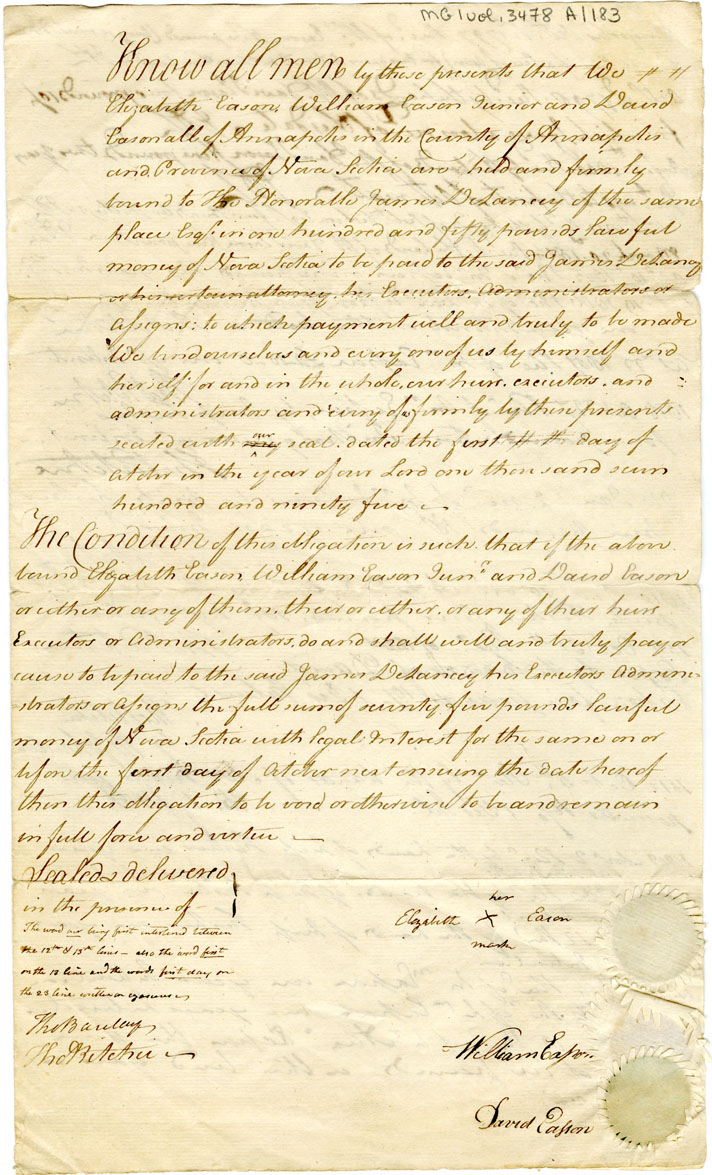 MG1 vol. 3478 A/183
Know all men by these presents that We # #
Elizabeth Eason, William Eason Junior and David
Eason all of Annapolis in the County of Annapolis
and Province of Nova Scotia are held and firmly
bound to The Honorable James DeLancey of the same
place Esqr. in one hundred and fifty pounds lawful
money of Nova Scotia to be paid to the said James DeLancey
or his certain attorney, his Executors, Administrators or
Assigns: to which payment well and truly to be made
We bind ourselves and every one of us by himself and
herself for and in the whole, our heirs, executors, and
administrators and every of firmly by these presents
sealed with our seal. dated the first # # day of
October in the year of our Lord one thousand seven
hundred and ninety five
The Condition of this obligation is such that if the above
bound Elizabeth Eason, William Eason Junr. and David Eason
or either or any of them, their or either, or any of their heirs
Executors or Administrators, do and shall well and truly pay or
cause to be paid to the said James DeLancey his Executors Admini-
-strators or Assigns the full sum of seventy five pounds lawful
money of Nova Scotia with legal Interest for the same on or
before the first day of October next ensuing the date hereof
then this obligation to be void or otherwise to be and remain
in full force and virtue
Sealed & delivered
in the presence of
The word our being first interlined between
the 12th & 13th line - also the word first
on the 13 line and the words first day on
the 23 line written on erasures
Tho Barclay
Tho Ritchie
her
Elizabeth X Eason
mark
William Eason
David Eason